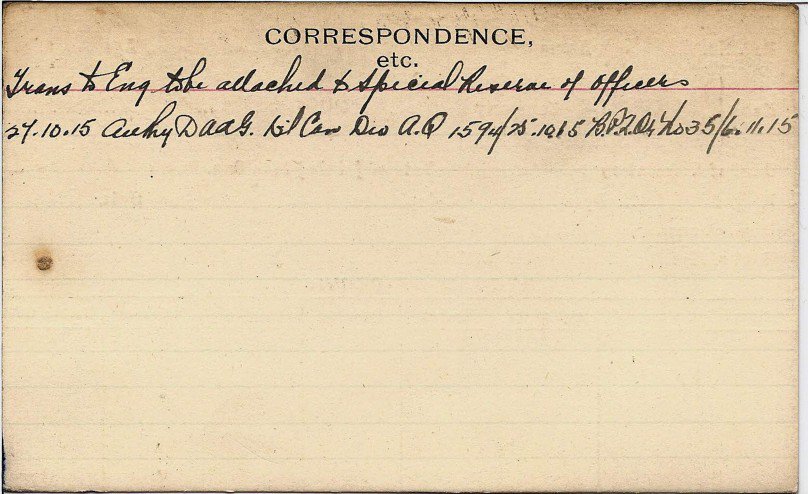 CORRESPONDENCE,
etc.
Trans to Eng to be attached to Special Reserve of Officers
27.10.15 Auth DAAG. 1st Can Div A.Q 1594/25.10.15 No 35/6.11.15